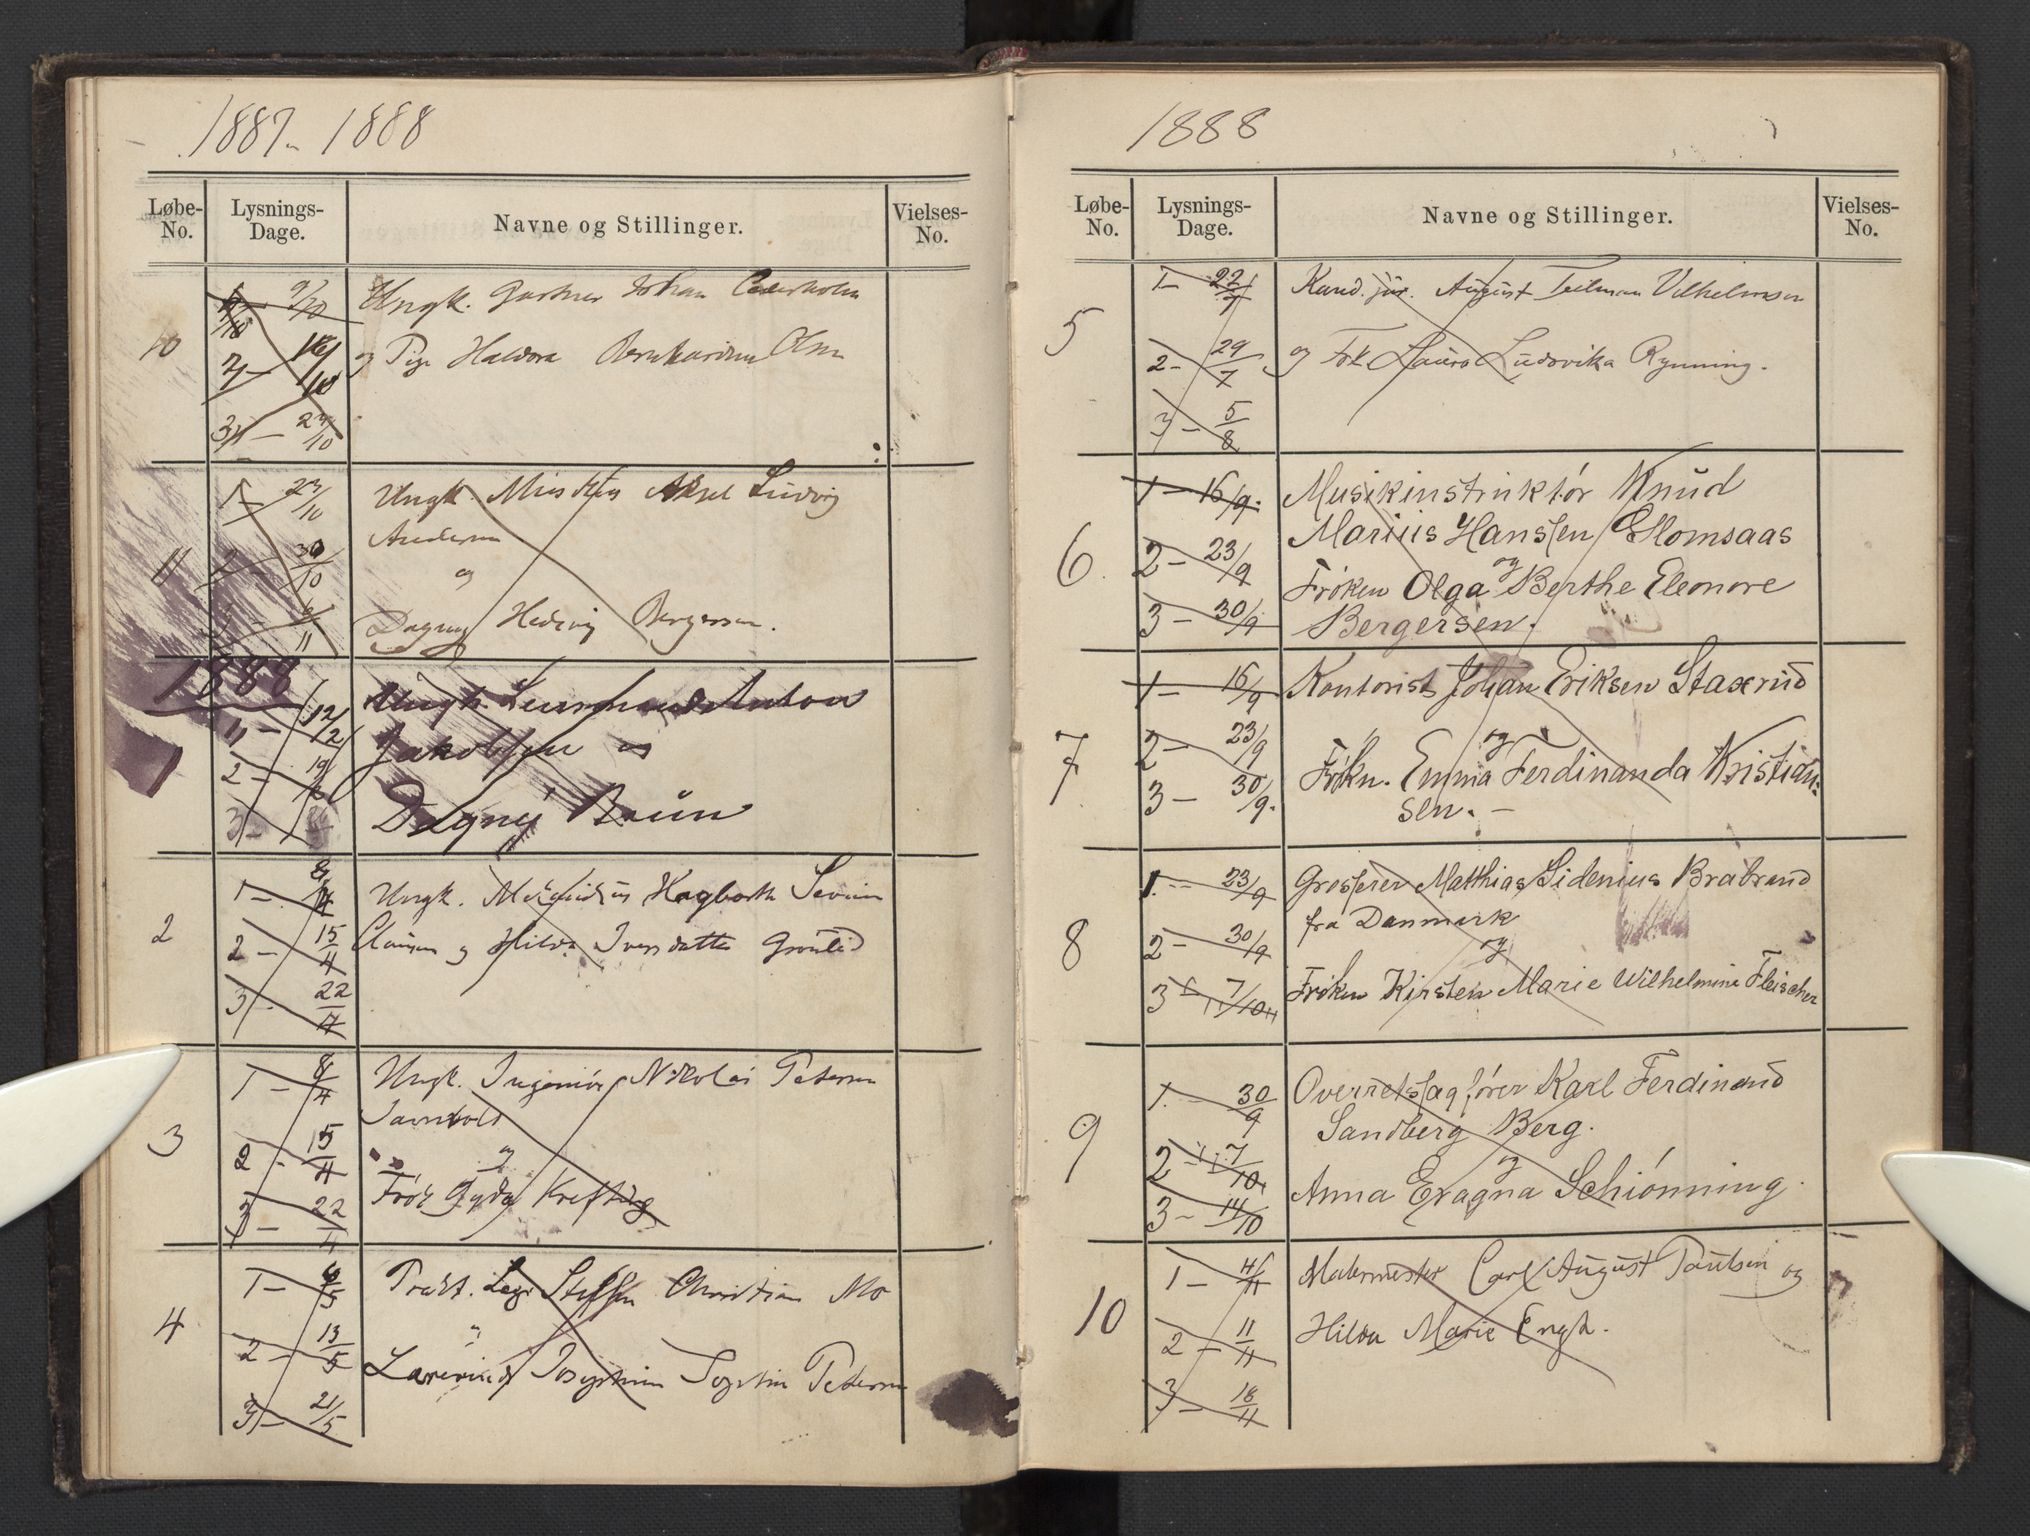 1887-1888
Løbe-No. Lysnings-Dage. Navne og Stillinger. Vielses-No.
10
9/10 Ungk. Gartner Johan Cederholm
2 - 16/10 og Pige Haldora Bernhardine Olsen
3 - 23/10
11
1 - 23/10 Ungk. Aksel Ludvig
Andersen
2 - 30/10 og
3 - 6/11 Dagny Hedvig Bergersen.
1888
1 - 12/2 Ungk. Anton
Jakobsen og
2 - 19/2
3 - Dagny Bruun
2
1 - 8/4 Ungk. Hagbarth Severin
2 - 15/4 Clausen og Hilda Iversdatter
3 - 22/4
3
1 - 8/4 Ungk. Ingeniør Nikolai Petersen
2 - 15/4 og
Frøk Gyda Krefting
3 - 22/4
4
1 - 6/5 Prakt. Læge Steffen Christian Mo
2 - 13/5 "
Josephine Sophie Petersen
3 - 21/5
1888
Løbe-No. Lysnings-Dage. Navne og Stillinger. Vielses-No.
5
1 - 22/7 Kand. jur. August Teilman Vilhelmsen
2 - 29/7 og Frk Laura Ludovika Rynning.
3 - 5/8
6
1 - 16/9. Musikinstruktør Knud
Marius Hanssen Glomsaas
2 - 23/9 og
Frøken Olga Berthe Eleonore
3 - 30/9 Bergersen.
7
1 - 16/9 Kontorist Johan Eriksen Staxrud
2 - 23/9 og
3 - 30/9. Frøkn. Emma Ferdinanda Kristian-
sen. -
8
1. - 23/9 Grosserer Matthias Sidenius Brabrand
fra Danmark
2 - 30/9 og
3 - 7/10 Frøken Kirsten Marie Wilhelmine Fleischer
9
1. - 30/9 Overretssagfører Karl Ferdinand
Sandberg Berg.
2 - 7/10 og
3 - 14/10 Anna Eragna Schiønning.
10
1 - 4/11 Malermester Carl August Paulsen og
2 - 11/11 Hilda Marie Engh.
3 - 18/11